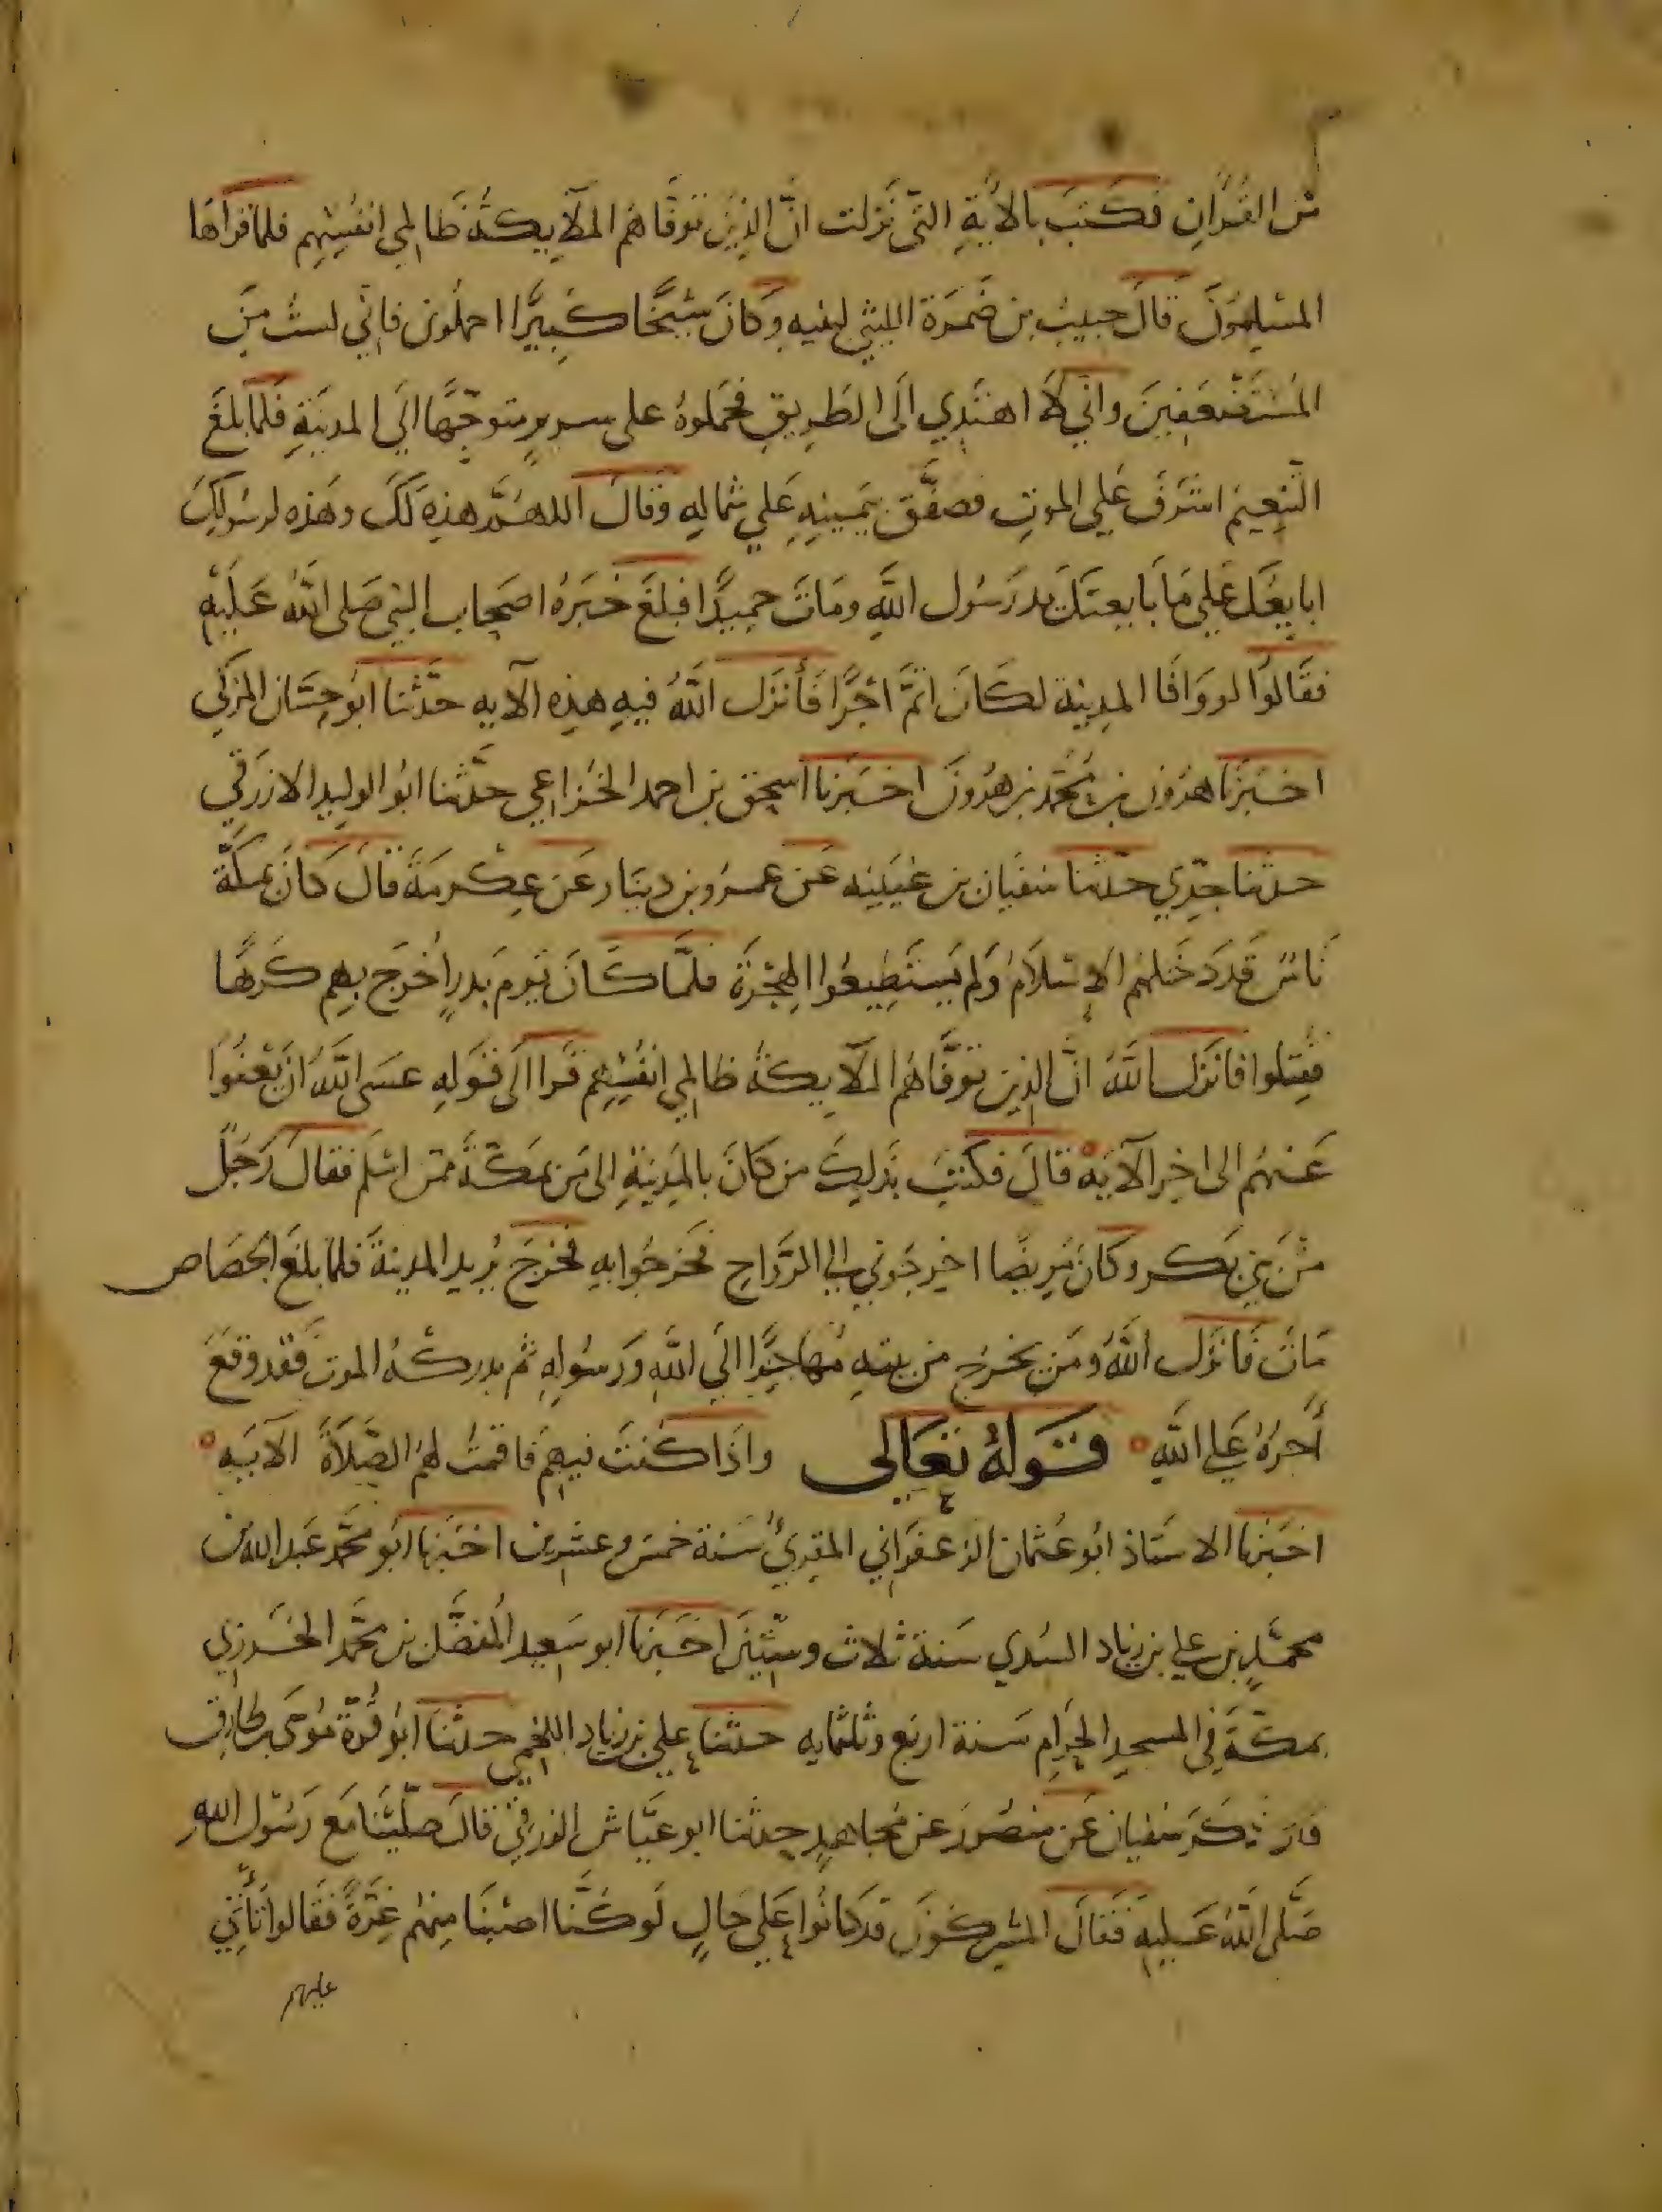 من القُرْانِ فكَتَبَ بالاٰيةِ التّى نَزلت انَّ الذين توَفَّاهُم الملآيِكةُ ظَالمِي انفُسِهِم فلمّا قراهَا
المسْلِمُونَ قالَ حبيبُ بن ضَمرَة الليثي لبنيهِ وَكانَ شيْخًا كَبِيرًا احملُونى فاِنّي لستُ مِنَ
المُسْتَضْعَفِينَ وانّي لَا اهتَدِي الَى الطَرِيقِ فحَملُوهُ على سريرٍ متوجّهًا الَي المدينَةِ فلمّا بَلغَ
التنعِيم اشرَفَ عَلي الموتِ فصَفَّقَ يَمِينِهِ عَلي شمالهِ وَقالَ اللهُمَّ هذِهِ لَكَ وهَذه لرسُولكَ
ابايعُكَ عَلي مَا بَايعتكَ يد رَسُول اللَّهِ ومَاتَ حميدًا فبلَغَ خَبَرُهُ اصحَاب النبى صَلى اللَّهُ عَلَيْهِ
فقَالُوا لو وَافَا المدِينة لكَانَ اتمَّ اجْرًا فَأنزَل اللَّهُ فيهِ هذِهِ الآيه حَدّثنا ابُو حسّان المزكّي
اخبَرَنَا هٰرُون بن محُمّد بن هٰرُونَ اخبَرنَا اسحٰق بن احمد الخُزاعي حدَّثنا ابُو الوليد الازرَقي
حدثنا جدّي حدّثنا سفيَان بن عُيَينه عَن عمرو بن دينَار عَن عِكرمَةَ قالَ كانَ بمكّة
نَاسٌ قَد دَخَلهُم الاِسْلاَمُ وَلم يَسْتَطِيعُوا الهِجْرَة فلمَّا كَانَ يَومَ بَدرٍ أُخرَج بهم كَرهًا
فقُتِلوا فانزَل اللَّهُ انَّ الذين توَفَّاهُم الملآيِكةُ ظَالمِي انفُسِهِم قرا الَى قَولِهِ عسَى اللَّهُ ان يَعْفُوا
عَنهُم الى اخِر الآيَة قالَ فكَتبَ بذَلِكَ من كانَ بالمَدِينَةِ الى مَن بمَكّة ممّن اسْلَم فقالَ رَجلٌ
مِّنَ بَنى بَكر وكَانَ مَرِيضًا اخرجُوني الى الرَّوَاحِ فخرجُوا بهِ فخرَجَ يُرِيد المدينةَ فلمّا بلَغَ الحَصَاص
مَاتَ فَانزَل اللَّهُ ومَن يخرُج من بيتهِ مُهَاجِرًا الَي اللَّهِ وَرَسُولهِ ثم يدركْهُ الموت فقَد وقَعَ
أجرُهُ عَلي اللَّهِ قَولهُ تعَالى واذَا كُنتَ فيهِم فَاقمتَ لهُم الصَّلَاةَ الآيَه
اخبَرنا الاستَاذ ابُو عُثمان الزعفرَاني المقرِئُ سَنة خمس وعشرين اخبَرنا ابُو محمّد عَبد الله بن
محمّدٍ بن علي بن زيَاد السُدي سَنة ثلاث وستّينَ اخبَرنا ابو سَعيد المُفضَّل بن محمَّد الخَزرَي
بمكّةَ في المسجد الحَرامِ سَنة اربَع وثلثمايه حدثنا علي بن زيَاد اللخمِي حدثنا ابُو قُرّة مُوسَى بن طَارق
قالَ ذكَرَ سُفيان عَن منصُورَ عَن مُجاهدٍ حدثنا ابو عيَّاش الزرقيّ قالَ صلّينَا مَع رَسُول اللهِ
صَلَّى اللَّهُ عَليهِ فقَالَ المشركُونَ قد كانُوا عَلي حَالٍ لَو كُنَّا اصبنَا مِنهُم غِرّةً فقَالوا تَأتي
عليهم